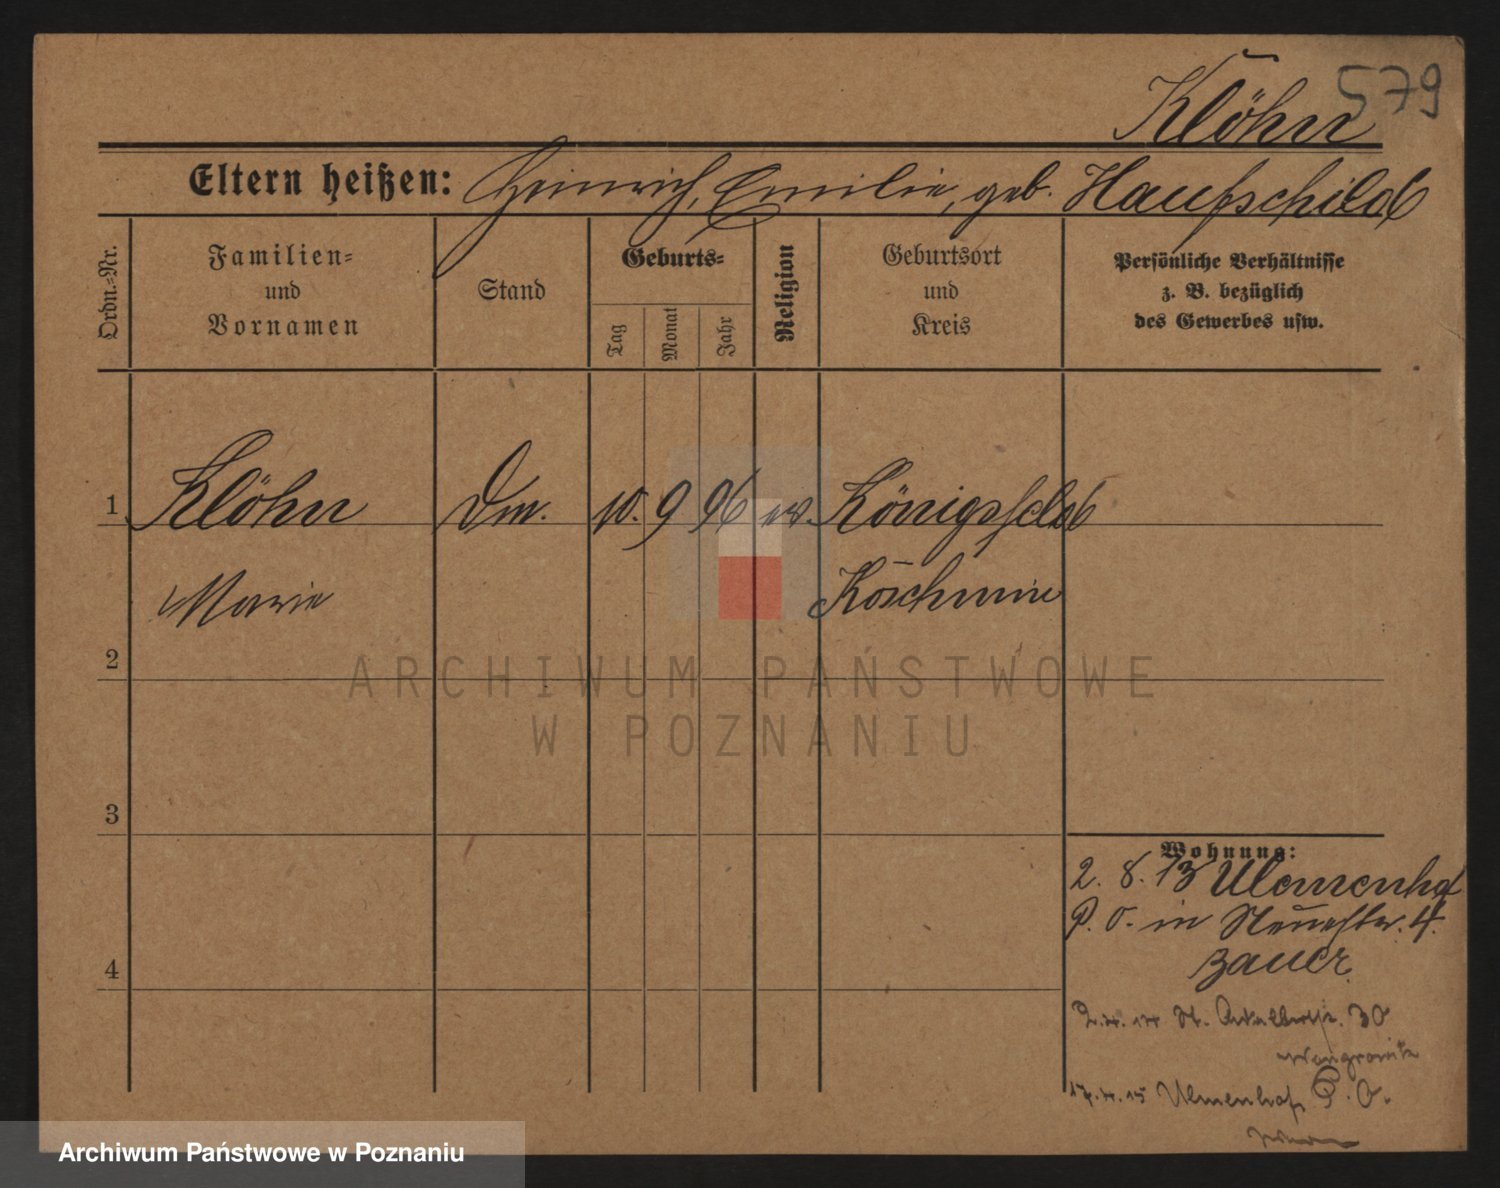 579
Klöhn
Eltern heißen: Heinrich, Emilie, geb. Haufschild
Ordn.-Nr.
Familien-
und
Vornamen
Stand
Geburts-
Tag
Monat
Jahr
Religion
Geburtsort
und
Kreis
Persönliche Verhältnisse
z. B. bezüglich
des Gewerbes usw.
1 Klöhn Dm. 10. 9 96 ev. Königsfeld
Marie Köschmin
2
ARCHIWUM PAŃSTWOWE
W POZNANIU
3
Wohnung:
2. 8. 13 Ulemenhof
P. O. in 4.
Bauer
4
2.4.14 St. Adalbertstr. 30
Wongrowitz
17.4.15 Ulmenhof P. O.
Archiwum Państwowe w Poznaniu